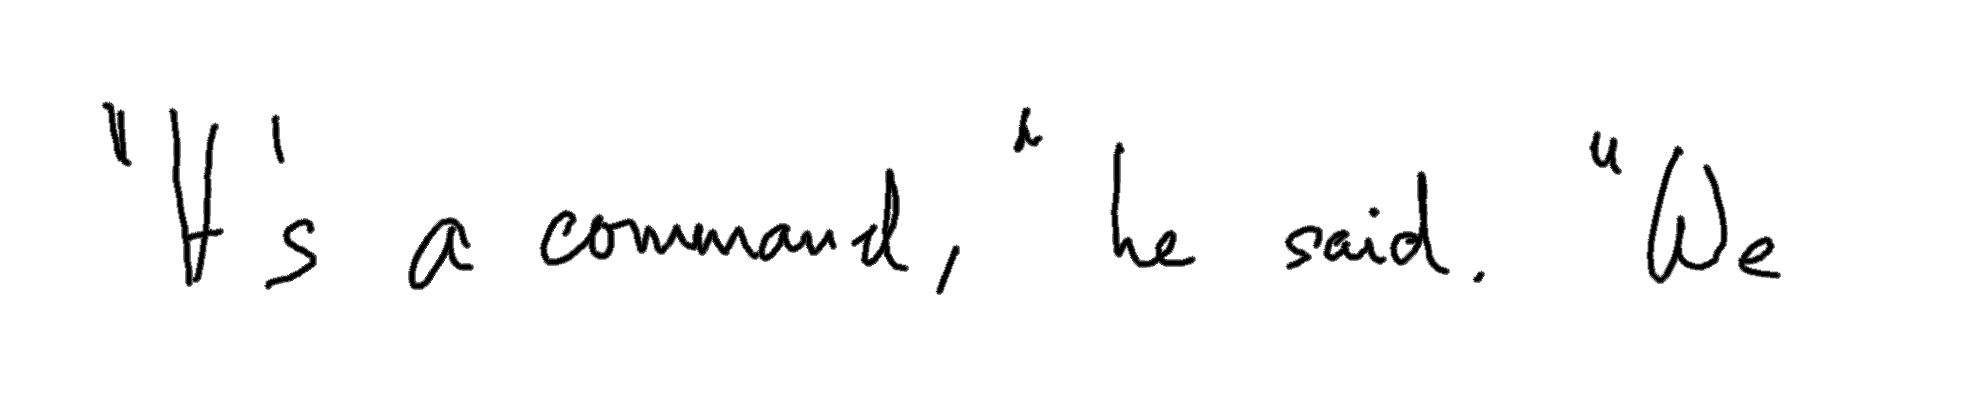 "It's a command," he said. "We